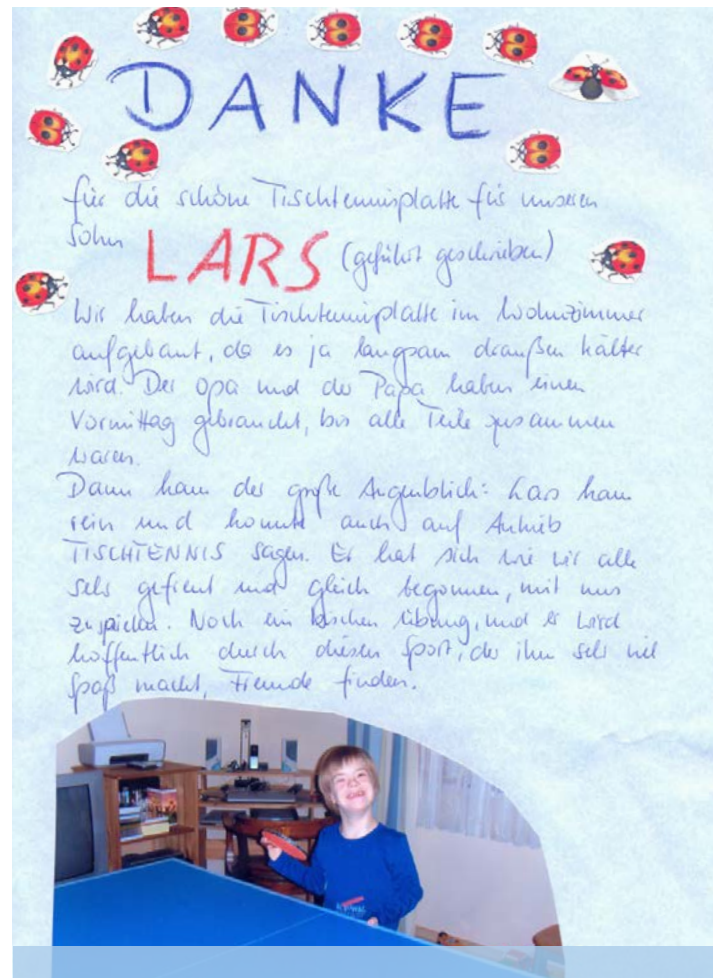 DANKE
für die schöne Tischtennisplatte für unseren
Sohn LARS (geführt geschrieben)
Wir haben die Tischtennisplatte im Wohnzimmer
aufgebaut, da es ja langsam draußen kälter
wird. Der Opa und der Papa haben einen
Vormittag gebraucht, bis alle Teile zusammen
waren.
Dann kam der große Augenblick: Lars kam
rein und konnte auch auf Anhieb
TISCHTENNIS sagen. Er hat sich wie wir alle
sehr gefreut und gleich begonnen, mit uns
zu spielen. Noch ein bisschen Übung, und er wird
hoffentlich durch diesen Sport, der ihm sehr viel
Spaß macht, Freunde finden.